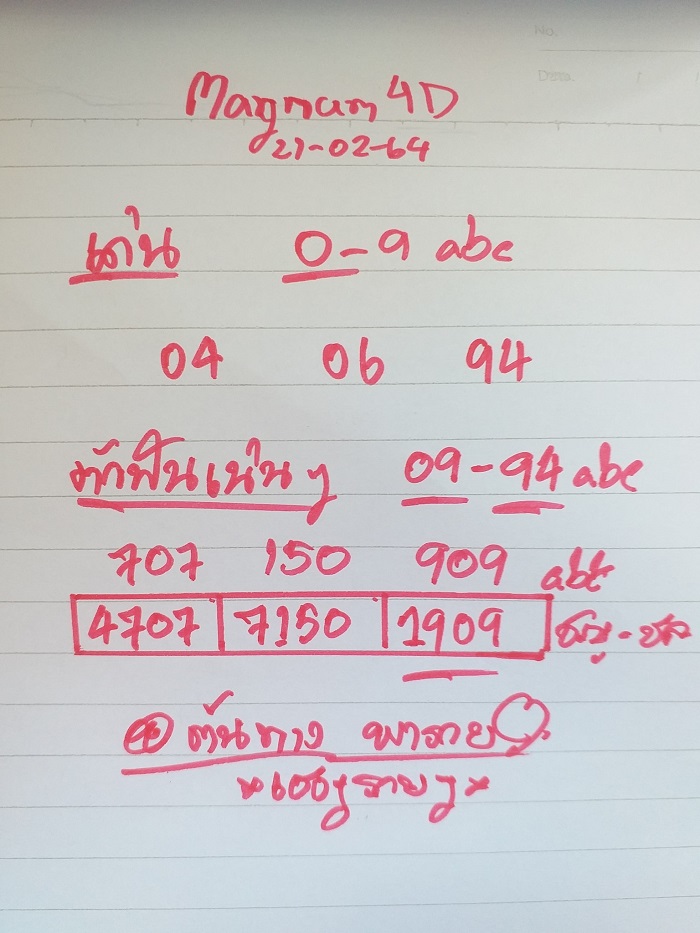 No.
Date.
Magnum 4D
21-02-64
เด่น 0-9 abc
04 06 94
ฟันเน้นๆ 09-94 abc
707 150 909 abc
4707 7150 1909
ต้นทาง พารวย